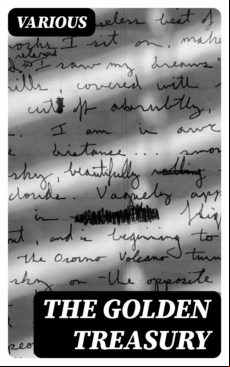 VARIOUS
seless beat of
rocks I sit on, make
relaxed
I saw my dreams
ills, covered with
cut off abruptly,
I am in awe
distance... smo
sky, beautifully
clouds. Vaguely app
in
nt, and is beginning to
the Osorno Volcano turn
sky on the opposite
THE GOLDEN
TREASURY
peo